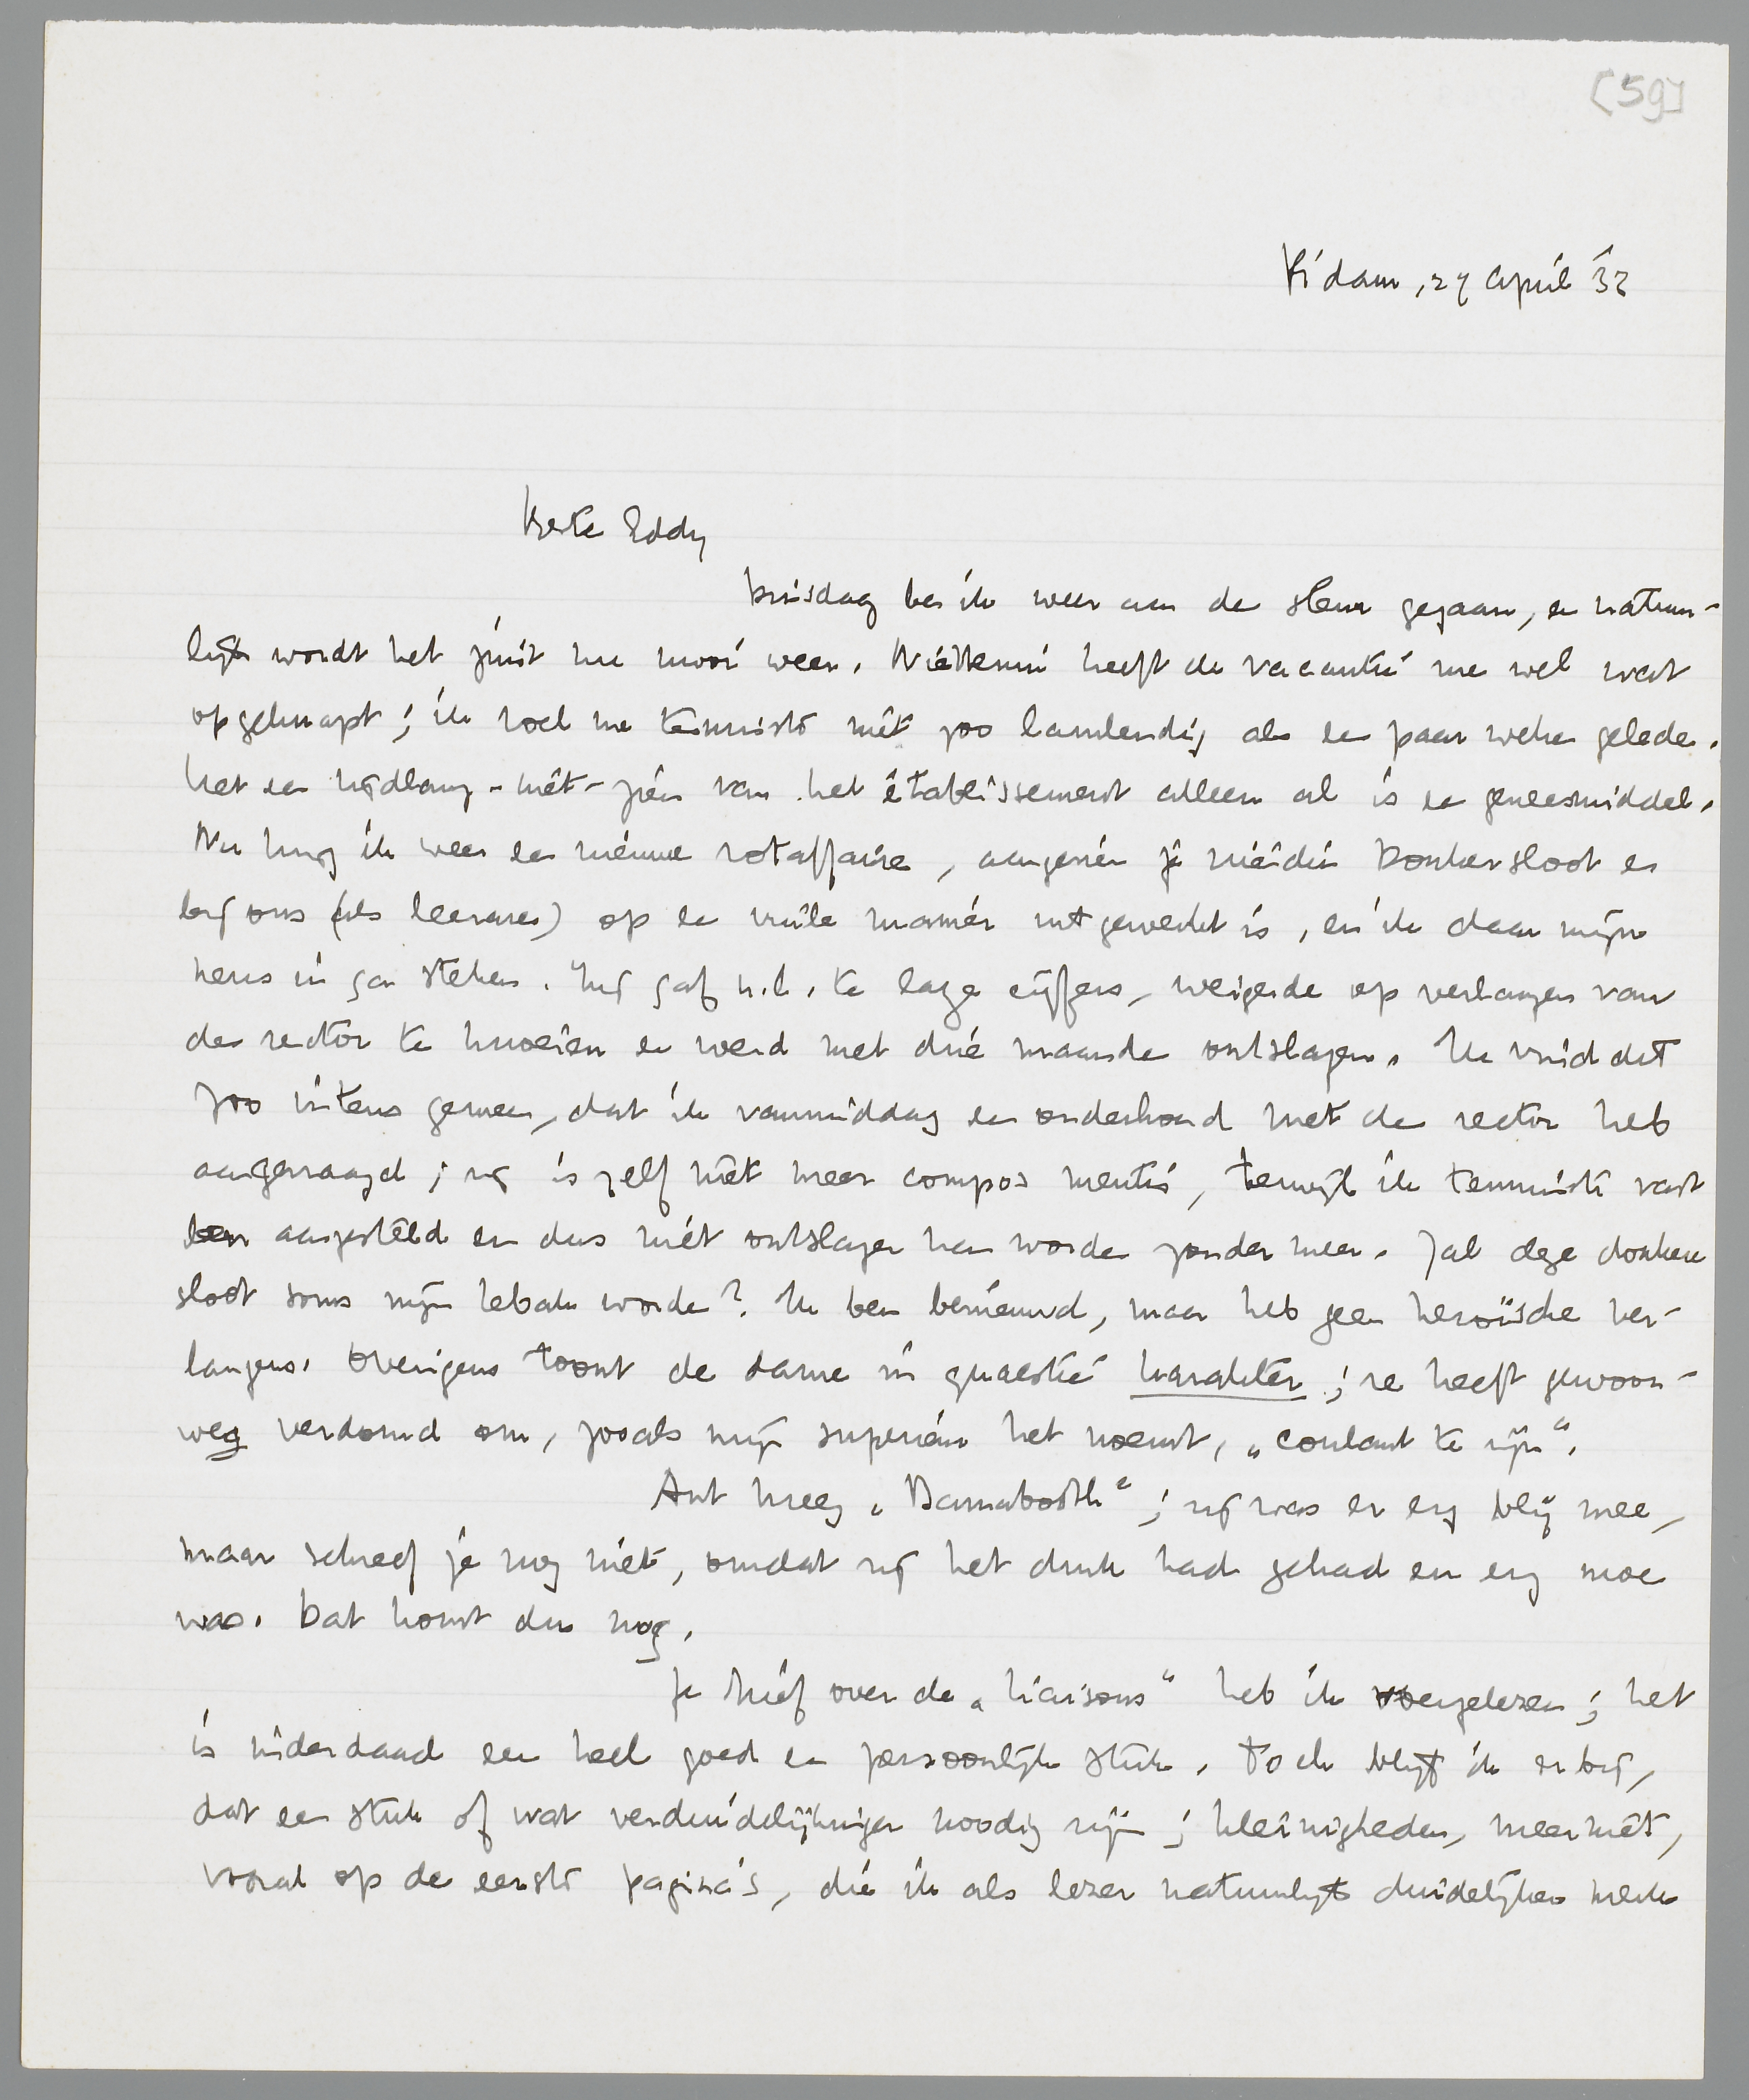 [59]
R'dam, 27 April '32
Beste Eddy
Dinsdag ben ik weer aan de sleur gegaan, en natuur-
lijk wordt het juist nu mooi weer. Niettemin heeft de vacantie me wel wat
opgeknapt; ik voel me tenminste niet zoo lamlendig als een paar weken geleden.
Het een tijdlang-niet-zien van het établissement alleen al is een geneesmiddel.
Nu krijg ik weer een nieuwe rotaffaire, aangezien je vriendin Donkersloot er
bij ons (als leerares) op een vuile manier uitgewerkt is, en ik daar mijn
neus in ga steken. Zij gaf n.l. te lage cijfers, weigerde op verlangen van
den rector te knoeien en werd met drie maanden ontslagen. Ik vind dat
zoo intens gemeen, dat ik vanmiddag een onderhoud met den rector heb
aangevraagd; zij is zelf niet meer compos mentis, terwijl ik tenminste vast
ben aangesteld en dus niet ontslagen kan worden zonder meer. Zal deze donkere
sloot soms mijn Lebak worden? Ik ben benieuwd, maar heb geen heroïsche ver-
langens. Overigens toont de dame in quaestie karakter; ze heeft gewoon-
weg verdomd om, zooals mijn superieur het noemt, „coulant te zijn".
Ant kreeg „Barnabooth"; zij was er erg blij mee,
maar schreef je nog niet, omdat zij het druk had gehad en erg moe
was. Dat komt dus nog.
Je brief over de „Liaisons" heb ik overgelezen; het
is inderdaad een heel goed en persoonlijk stuk. Toch blijf ik erbij,
dat een stuk of wat verduidelijkingen noodig zijn; kleinigheden, meer niet,
vooral op de eerste pagina's, die ik als lezer natuurlijk duidelijker merk